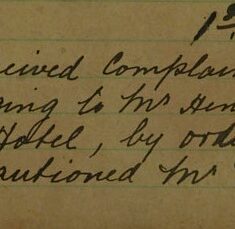 1st
ceived Complain
ging to Mr Hen
Hotel, by orde
autioned Mr